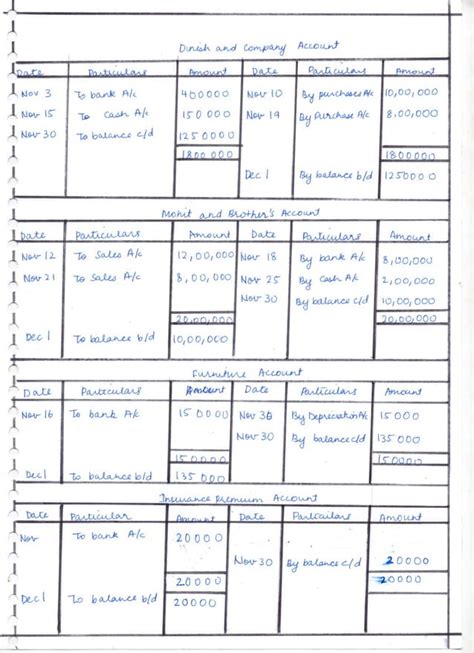 Dinesh and Company Account
Date Particulars Amount Date Particulars Amount
Nov 3 To bank A/c 400000 Nov 10 By purchases A/c 10,00,000
Nov 15 To Cash A/c 150 000 Nov 19 By Purchase A/c 8,00,000
Nov 30 To balance c/d 1250000
1800 000 1800000
Dec 1 By balance b/d 1250000
Mohit and Brother's Account
Date Particulars Amount Date Particulars Amount
Nov 12 To Sales A/c 12,00,000 Nov 18 By bank A/c 8,00,000
Nov 21 To Sales A/c 8,00,000 Nov 25 By Cash A/c 2,00,000
Nov 30 By balance c/d 10,00,000
20,00,000 20,00,000
Dec 1 To balance b/d 10,00,000
Furniture Account
Date Particulars Amount Date Particulars Amount
Nov 16 To bank A/c 150000 Nov 30 By Depreciation A/c 15000
Nov 30 By balance c/d 135 000
150000 150000
Dec 1 To balance b/d 135 000
Insurance Premium Account
Date Particular Amount Date Particulars Amount
Nov To bank A/c 20000
Nov 30 By balance c/d 20000
20000 20000
Dec 1 To balance b/d 20000